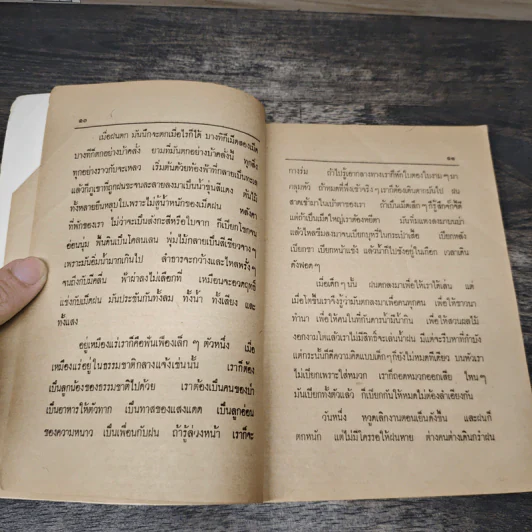 ๑๓
เมื่อฝนตก มันนึกจะตกเมื่อไรก็ได้ บางทีก็เม็ดสองเม็ด
บางทีก็ตกอย่างบ้าคลั่ง ยามที่มันตกอย่างบ้าคลั่งนี้ ทุกสิ่ง
ทุกอย่างราวกับจะเหลว เริ่มต้นด้วยท้องฟ้าที่กลายเป็นทะเล
แล้วก็ภูเขาที่ถูกฝนชะจนละลายลงมาเป็นน้ำขุ่นสีแดง ต้นไม้
ทั้งหลายยืนหลุบใบเพราะไม่สู้น้ำหนักของเม็ดฝน หลังคา
ที่พักของเรา ไม่ว่าจะเป็นสังกะสีหรือใบจาก ก็เปียกโชกจน
อ่อนนุ่ม พื้นดินเป็นโคลนเลน พุ่มไม้กลายเป็นสีเขียวจาง ๆ
เพราะมันอิ่มน้ำมากเกินไป ลำธารจะกว้างและไหลพรั่ง
จนถึงกับมีคลื่น ฟ้าผ่าลงไม่เลือกที่ เหมือนจะอวดฤทธิ์
แข่งกับเม็ดฝน มันประชันกันทั้งลม ทั้งน้ำ ทั้งเสียง และ
ทั้งแสง
อยู่เหมืองแร่เราก็คือพันเฟืองเล็ก ๆ ตัวหนึ่ง เมื่อ
เหมืองแร่อยู่ในธรรมชาติกลางแจ้งเช่นนั้น เราก็ต้อง
เป็นลูกน้องของธรรมชาติไปด้วย เราต้องเป็นคนของป่า
เป็นอาหารให้ตัวทาก เป็นทาสของแสงแดด เป็นลูกออน
ของความหนาว เป็นเพื่อนกับฝน ถ้ารู้ล่วงหน้า เราก็จะ
๑๔
การ่ม ถ้าไปรู้เอากลางทางเราก็ตัดใบตองใบงาม ๆ มา
คลุมหัว ถ้าหมดที่พึ่งเข้าจริง ๆ เราก็ต้องเดินตากมันไป ฝน
สาดเข้ามาในเบ้าตาของเรา ถ้าเป็นเม็ดเล็ก ๆ ก็รู้สึกจั๊กจี้ดี
แต่ถ้าเป็นเม็ดใหญ่เราต้องหยีตา มันทิ่มแทงลงมาบนบ่า
แล้วไหลซึมลงมาจนเปียกบุหรี่ในกระเป๋าเสื้อ เปียกหลัง
เปียกขา เปียกหน้าแข้ง แล้วน้ำก็ไปขังอยู่ในเกือก เวลาเดิน
ดังฟอด ๆ
เมื่อเด็ก ๆ นั้น ฝนตกลงมาเพื่อให้เราได้เล่น แต่
เมื่อโตขึ้นเราจึงรู้ว่ามันตกลงมาเพื่อคนทุกคน เพื่อให้ชาวนา
ทำนา เพื่อให้คนในที่กันดารน้ำมีน้ำกิน เพื่อให้สวนผลไม้
งอกงามโตแล้วเราไม่มีสิทธิ์จะเล่นน้ำฝน มีแต่จะรีบหาที่กำบัง
แต่กระนั้นก็ดีความคิดแบบเด็ก ๆ ก็ยังไม่หมดทีเดียว บนหัวเรา
ไม่เปียกเพราะใส่หมวก เราก็ถอดหมวกออกเสีย ไหน ๆ
มันเปียกทั้งตัวแล้ว ก็เปียกกันให้หมดไม่ต้องลำเอียงกัน
วันหนึ่ง หวูดเลิกงานตอนเย็นดังขึ้น และฝนก็
ตกหนัก แต่ไม่มีใครรอให้ฝนหาย ต่างคนต่างเดินกรำฝน